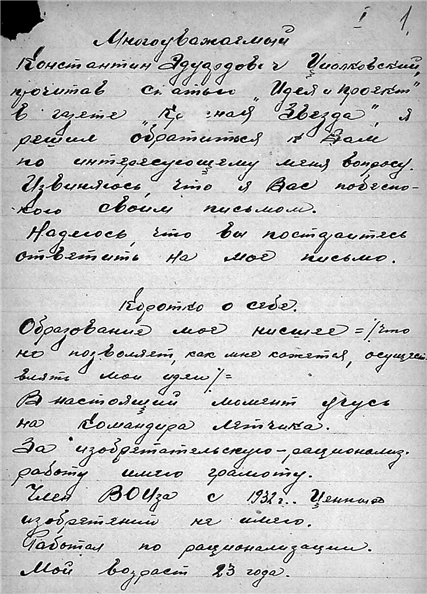 I 1
Многоуважаемый
Константин Эдуардович Циолковский,
прочитав статью „Идея и проект"
в газете „Красная Звезда", я
решил обратиться к Вам
по интересующему меня вопросу.
Извиняюсь, что я Вас побеспо-
кою своим письмом.
Надеюсь, что вы постараитесь
ответить на мое письмо.
Коротко о себе.
Образование мое нисшее =/что
не позволяет, как мне кажется, осущест
влять мои идеи/=
В настоящий момент учусь
на командира летчика.
За изобретательскую-рационализ.
работу имею грамоту.
Член ВОИза с 1932 г.. Ценных
изобретений не имею.
Работал по рационализации.
Мой возраст 23 года.